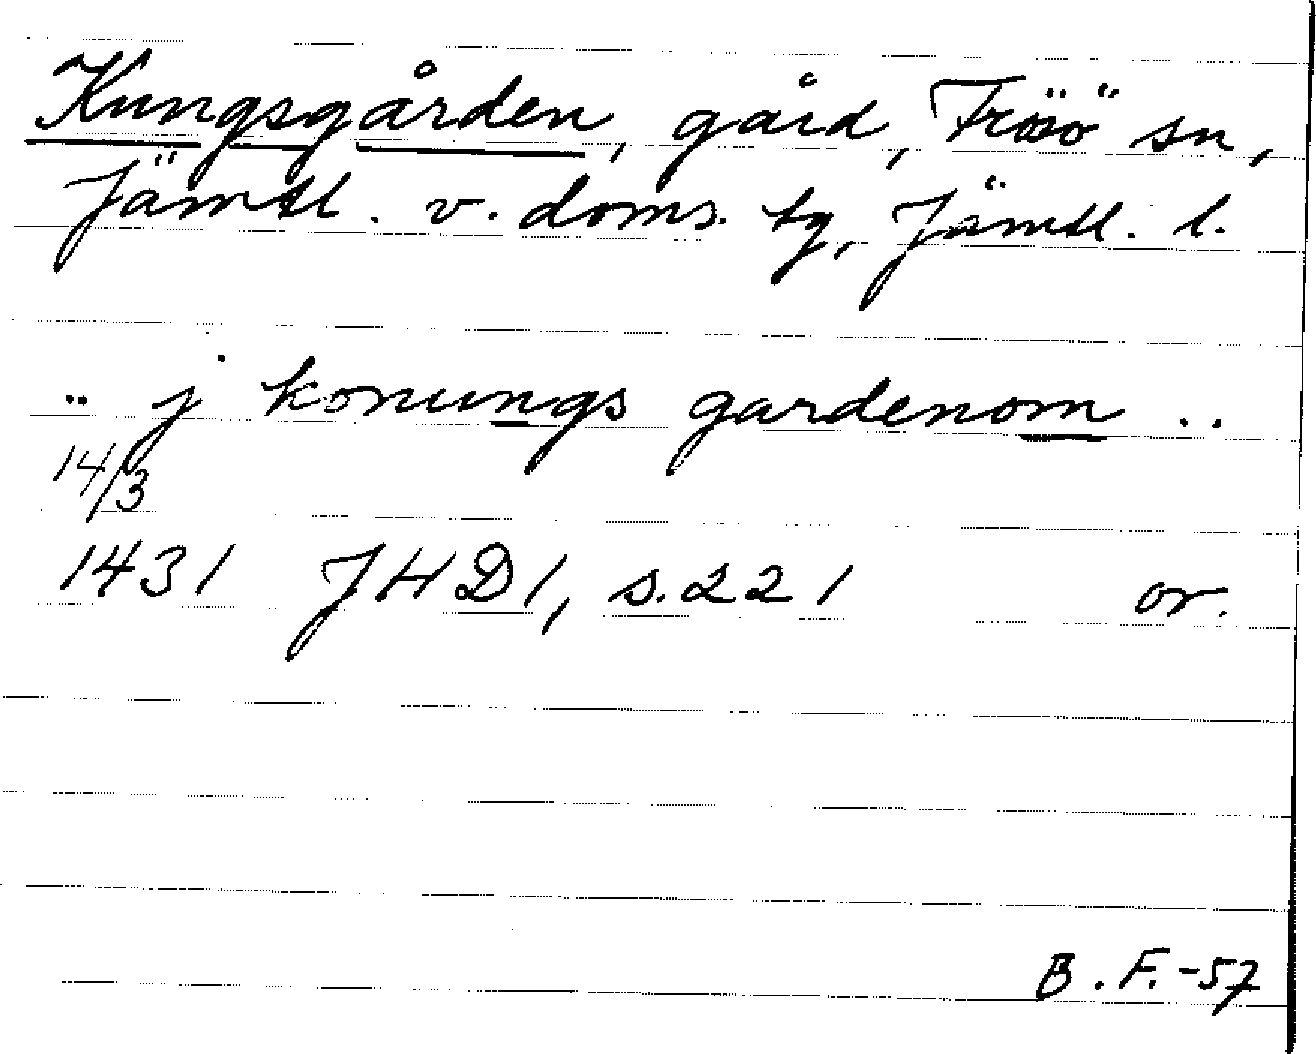 Kungsgården, gård, Frösö sn,
Jämtl. v. doms. tg, Jämtl. l.
.. j konungs gardenom ..
14/3
1431 JHD1, s. 221 or.
B. F. -57